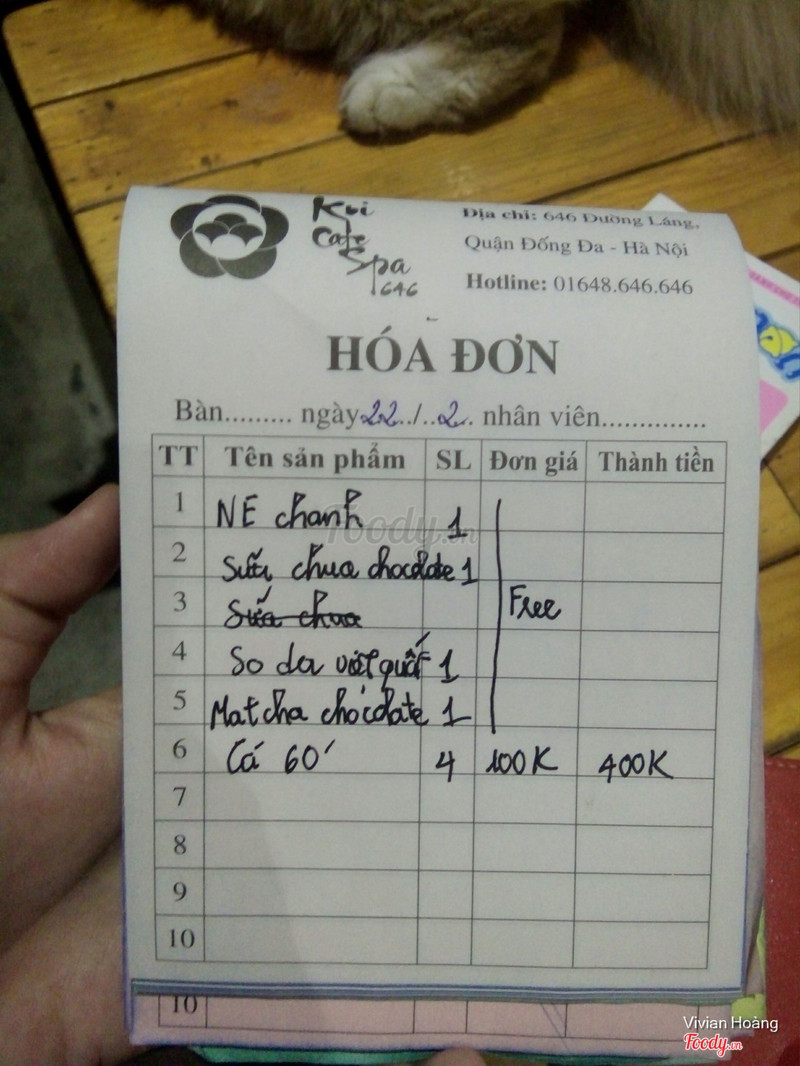 Koi
Cafe
Spa
646
Địa chỉ: 646 Đường Láng,
Quận Đống Đa - Hà Nội
Hotline: 01648.646.646
HÓA ĐƠN
Bàn......... ngày 22../..2.. nhân viên..............
TT Tên sản phẩm SL Đơn giá Thành tiền
1 NE chanh 1
2 Sữa chua chocolate 1
3 Sữa chua Free
4 So da việt quất 1
5 Matcha chocolate 1
6 Cá 60' 4 100K 400K
7
8
9
10
10
Foody.vn
Vivian Hoàng
Foody.vn